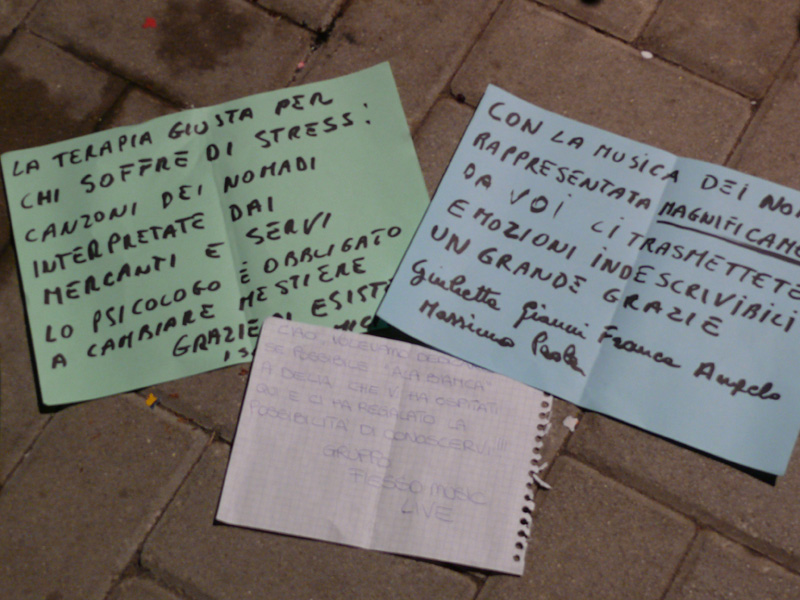 LA TERAPIA GIUSTA PER
CHI SOFFRE DI STRESS:
CANZONI DEI NOMADI
INTERPRETATE DAI
MERCANTI E SERVI
LO PSICOLOGO È OBBLIGATO
A CAMBIARE MESTIERE
GRAZIE DI ESISTE
CON LA MUSICA DEI NOM
RAPPRESENTATA MAGNIFICAME
DA VOI CI TRASMETTETE
EMOZIONI INDESCRIVIBILI
UN GRANDE GRAZIE
Giulietta Gianni Franca Angelo
Massimo Paola
CIAO, VOLEVAMO
SE POSSIBILE "ALA BIANCA"
A DELIA CHE VI HA OSPITATI
QUI E CI HA REGALATO LA
POSSIBILITÀ DI CONOSCERVI!!!
GRUPPO
FIESSO MUSIC
LIVE